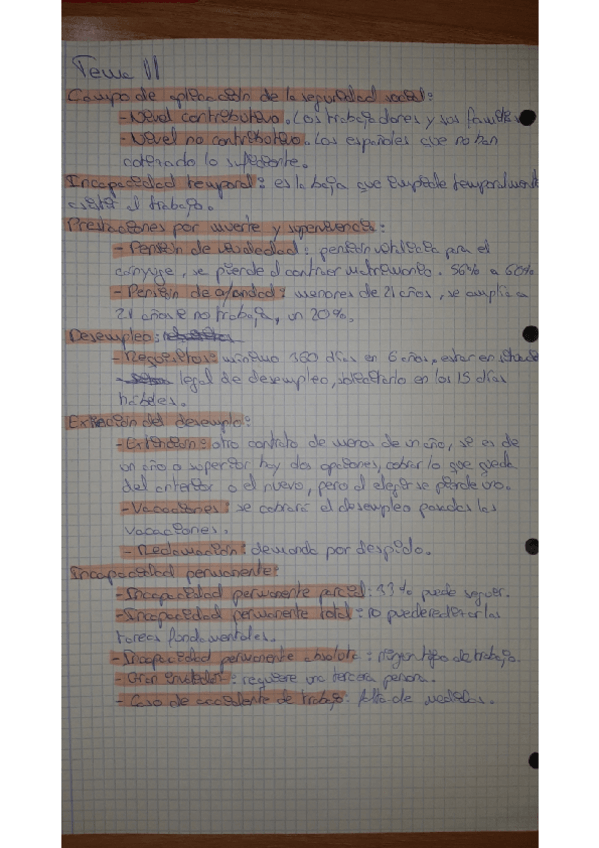 Tema 11
Campo de aplicación de la seguridad social:
- Nivel contributivo. Los trabajadores y sus familias
- Nivel no contributivo. Los españoles que no han
cotizado lo suficiente.
Incapacidad temporal: es la baja que impide temporalmente
asistir al trabajo.
Prestaciones por muerte y supervivencia:
- Pensión de viudedad: pensión vitalicia para el
cónyuge, se pierde al contraer matrimonio. 56% a 60%
- Pensión de orfandad: menores de 21 años, se amplía a
24 años si no trabaja, un 20%.
Desempleo:
- Requisitos: mínimo 360 días en 6 años, estar en
legal de desempleo, solicitarlo en los 15 días
hábiles.
Extinción del desempleo:
- Extinción: otro contrato de menos de un año, se es de
un año o superior hay dos opciones, cobrar lo que queda
del anterior o el nuevo, pero al elegir se pierde uno.
- Vacaciones: se cobrará el desempleo pasadas las
vacaciones.
- Reclamación: demanda por despido.
Incapacidad permanente:
- Incapacidad permanente parcial: 33% puede seguir.
- Incapacidad permanente total: no puede realizar las
tareas fundamentales.
- Incapacidad permanente absoluta: ningún tipo de trabajo.
- Gran invalidez: requiere una tercera persona.
- Caso de accidente de trabajo: falta de medidas.